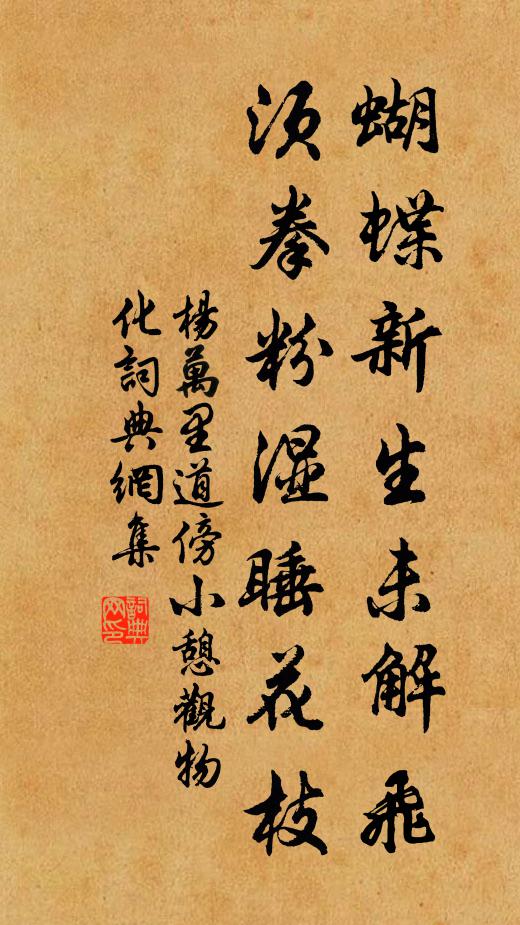 蝴蝶新生未解飛
須拳粉濕睡花枝
楊萬里道傍小憩觀物
化詞典網集
詞典
网印